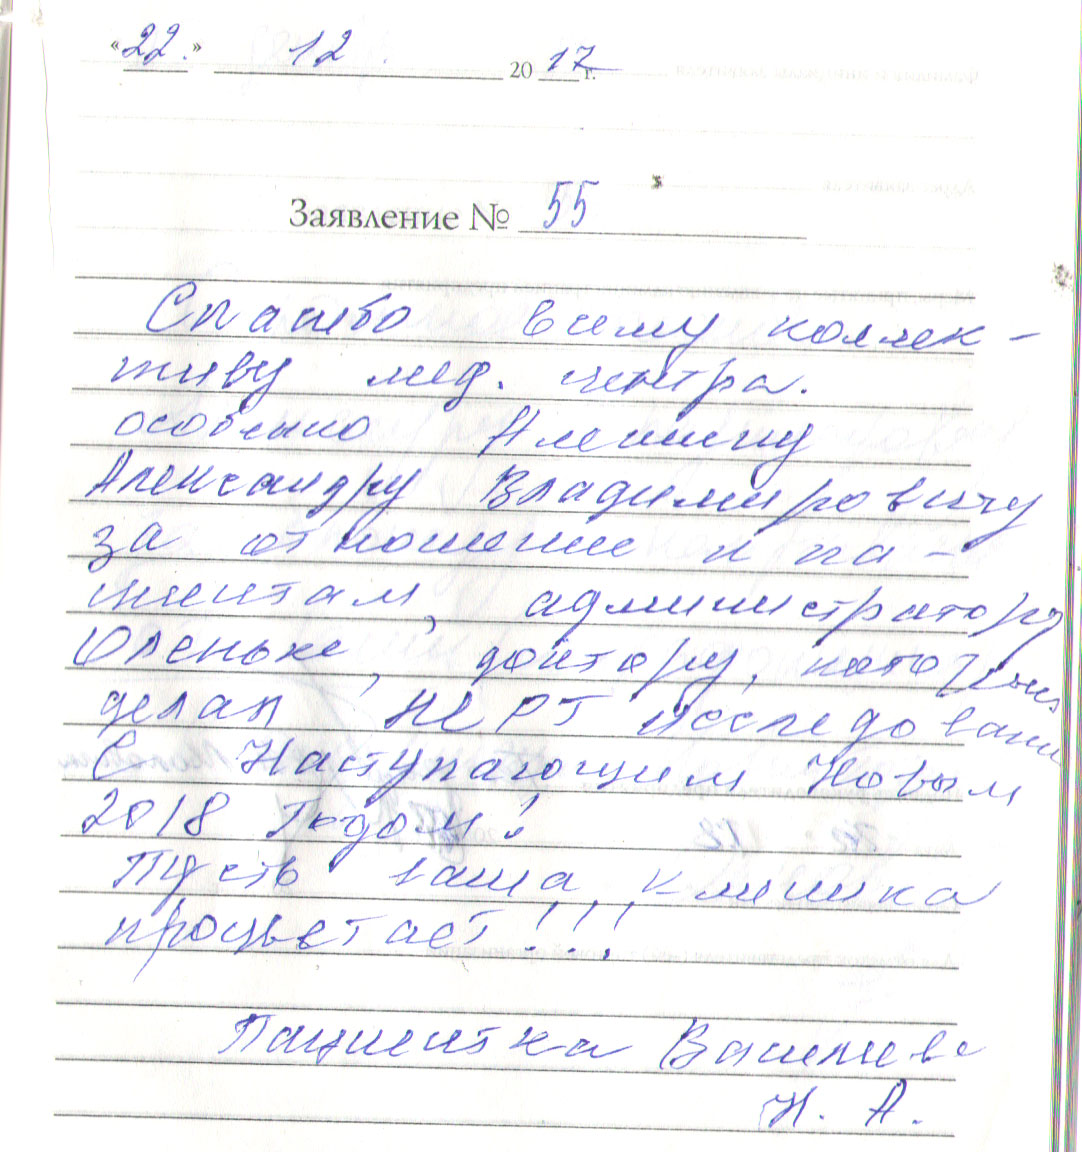 «22.» 12. 2017 г.
Заявление № 55
Спасибо всему коллек-
тиву мед. центра.
особенно
Александру Владимировичу
за отношение к па-
циентам, администратору
Оленьке, доктору, который
делал МРТ исследование
С Наступающим Новым
2018 Годом!
Пусть ваша клиника
процветает!!!
Пациентка Васильева
Н. А.